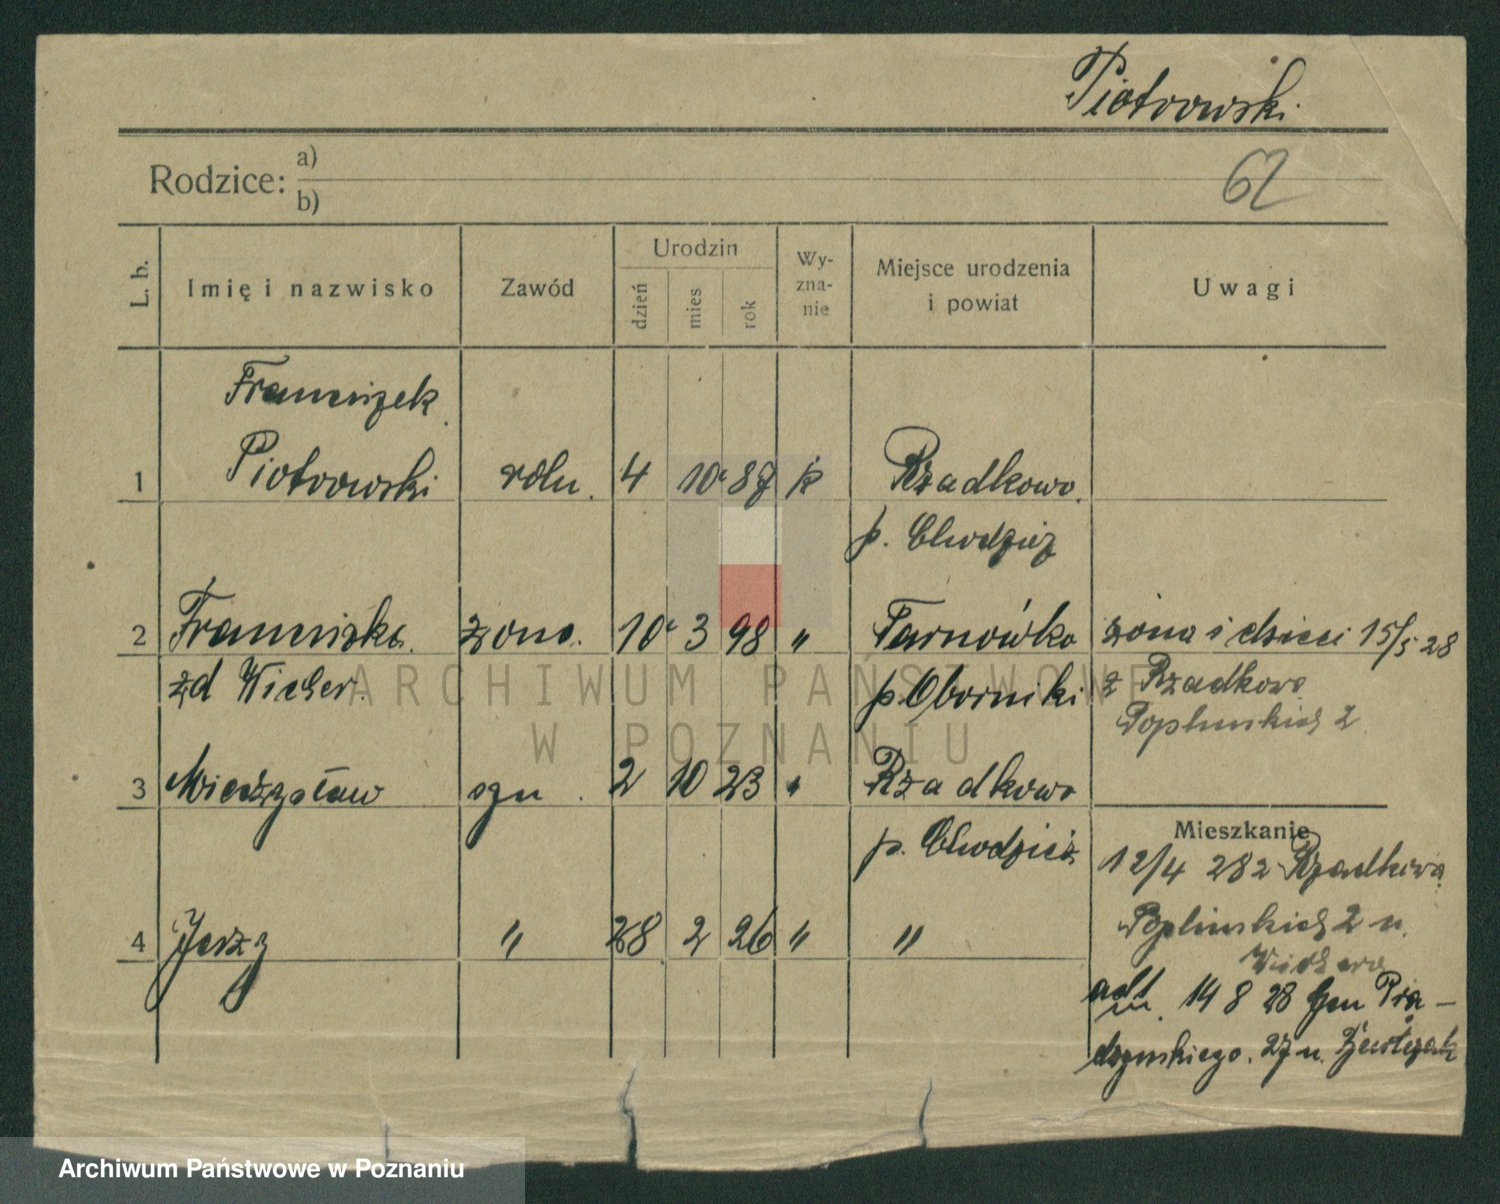 Piotrowski
62
Rodzice: a)
b)
L. b. Imię i nazwisko Zawód Urodzin dzień mies rok Wy-zna-nie Miejsce urodzenia i powiat Uwagi
Franciszek
1 Piotrowski roln. 4 10 87 k Rzadkowo
p. Chodzież
2 Franciszka żona 10 3 98 " Tarnówko żona i dzieci 15/5 28
zd Wicher p. Oborniki z Rzadkowo
Poplinskich 2
3 Mieczysław syn 2 10 23 " Rzadkowo
Mieszkanie
p. Chodzież 12/4 28 z Rzadkowa
4 Jerzy " 28 2 26 " " Poplinskich 2 u.
Wichera
14 8 28 Gen Prą-
dzynskiego 27 u.
ARCHIWUM PAŃSTWOWE
W POZNANIU
Archiwum Państwowe w Poznaniu